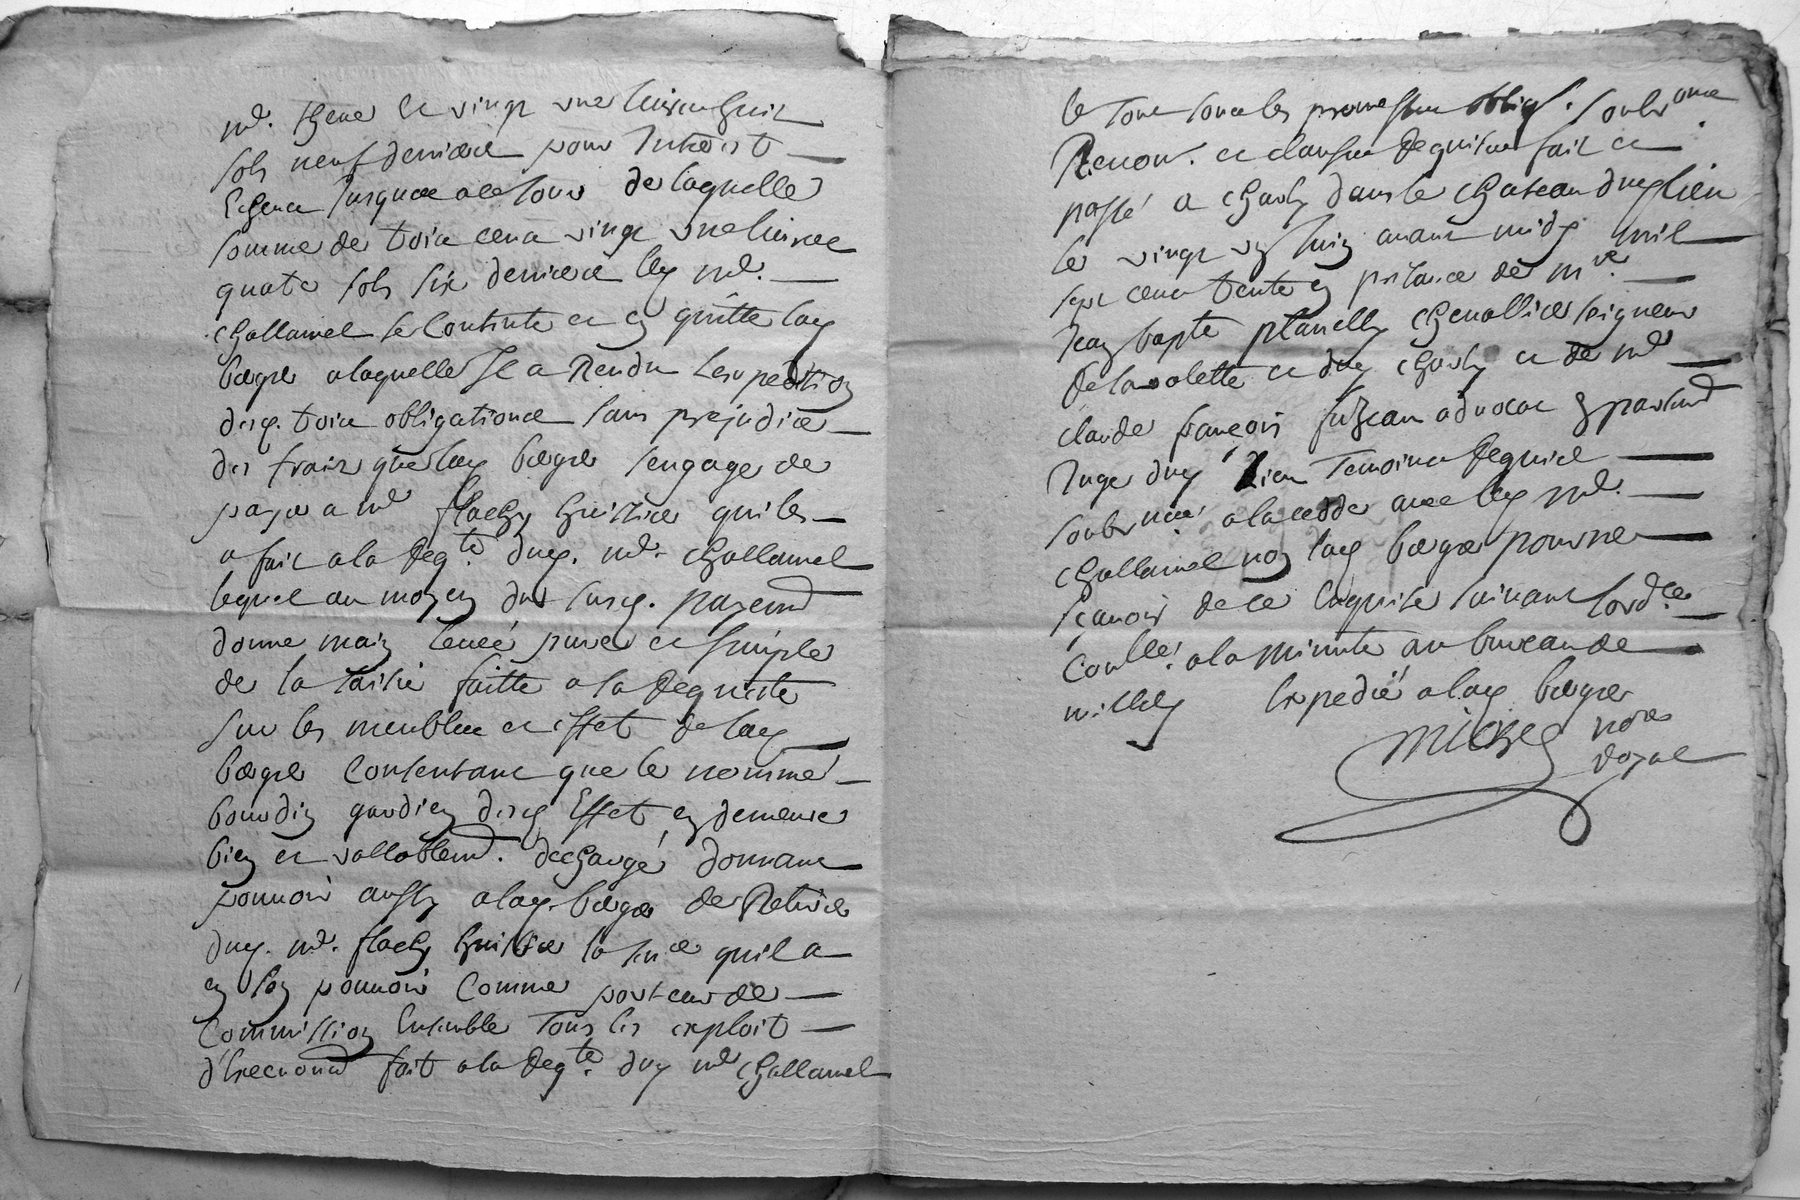 mr. thene et vingt une livres huit
sols neuf deniers pour Interest
Echeus jusques a ce jour de laquelle
somme de trois cens vingt une livres
quatre sols six deniers led mr.
challamel se contente et en quitte lad
bergre a laquelle Il a Rendu Lexpedition
desd. trois obligations sans prejudice
des frais que lad bergre sengage de
payer a mr flachy huissier qui les
a fait a la Reqte. dud. mr. challamel
lequel au moyen du susd. payemt
donne main levée pure et simple
de la saisie faitte a la Requete
sur les meubles et effet de lad
bergre Consentant que le nommé
bourdin gardien desd Effet en demeure
bien et vallablemt. dechargé donnant
pouvoir aussy a lad. bergre de Retirer
dud. mr. flachy huissier la qu'il a
en son pouvoir comme porteur de
Commission Ensemble tous les exploit
d'Execuonmt fait a la Reqte. dud mr challamel
le tout sous les promesses oblig. soubmons
Renon. et clauses Requises fait et
passé a charly dans le chateau dud lieu
le vingt un juin avant midy mil
sept cent trente en presence de mre.
Jean bapte planelly chevallier seigneur
de la valette et dud charly et de mr
claude françois avocat en parlemt
Juge dud lieu Temoins Requis
soubsnés a la cedde avec led mr.
challamel non lad bergre pour ne
sçavoir de ce Enquise suivant lordce.
Conllé. a la minute au bureau de
millery Expedié a lad bergre
Michel nore
Royal